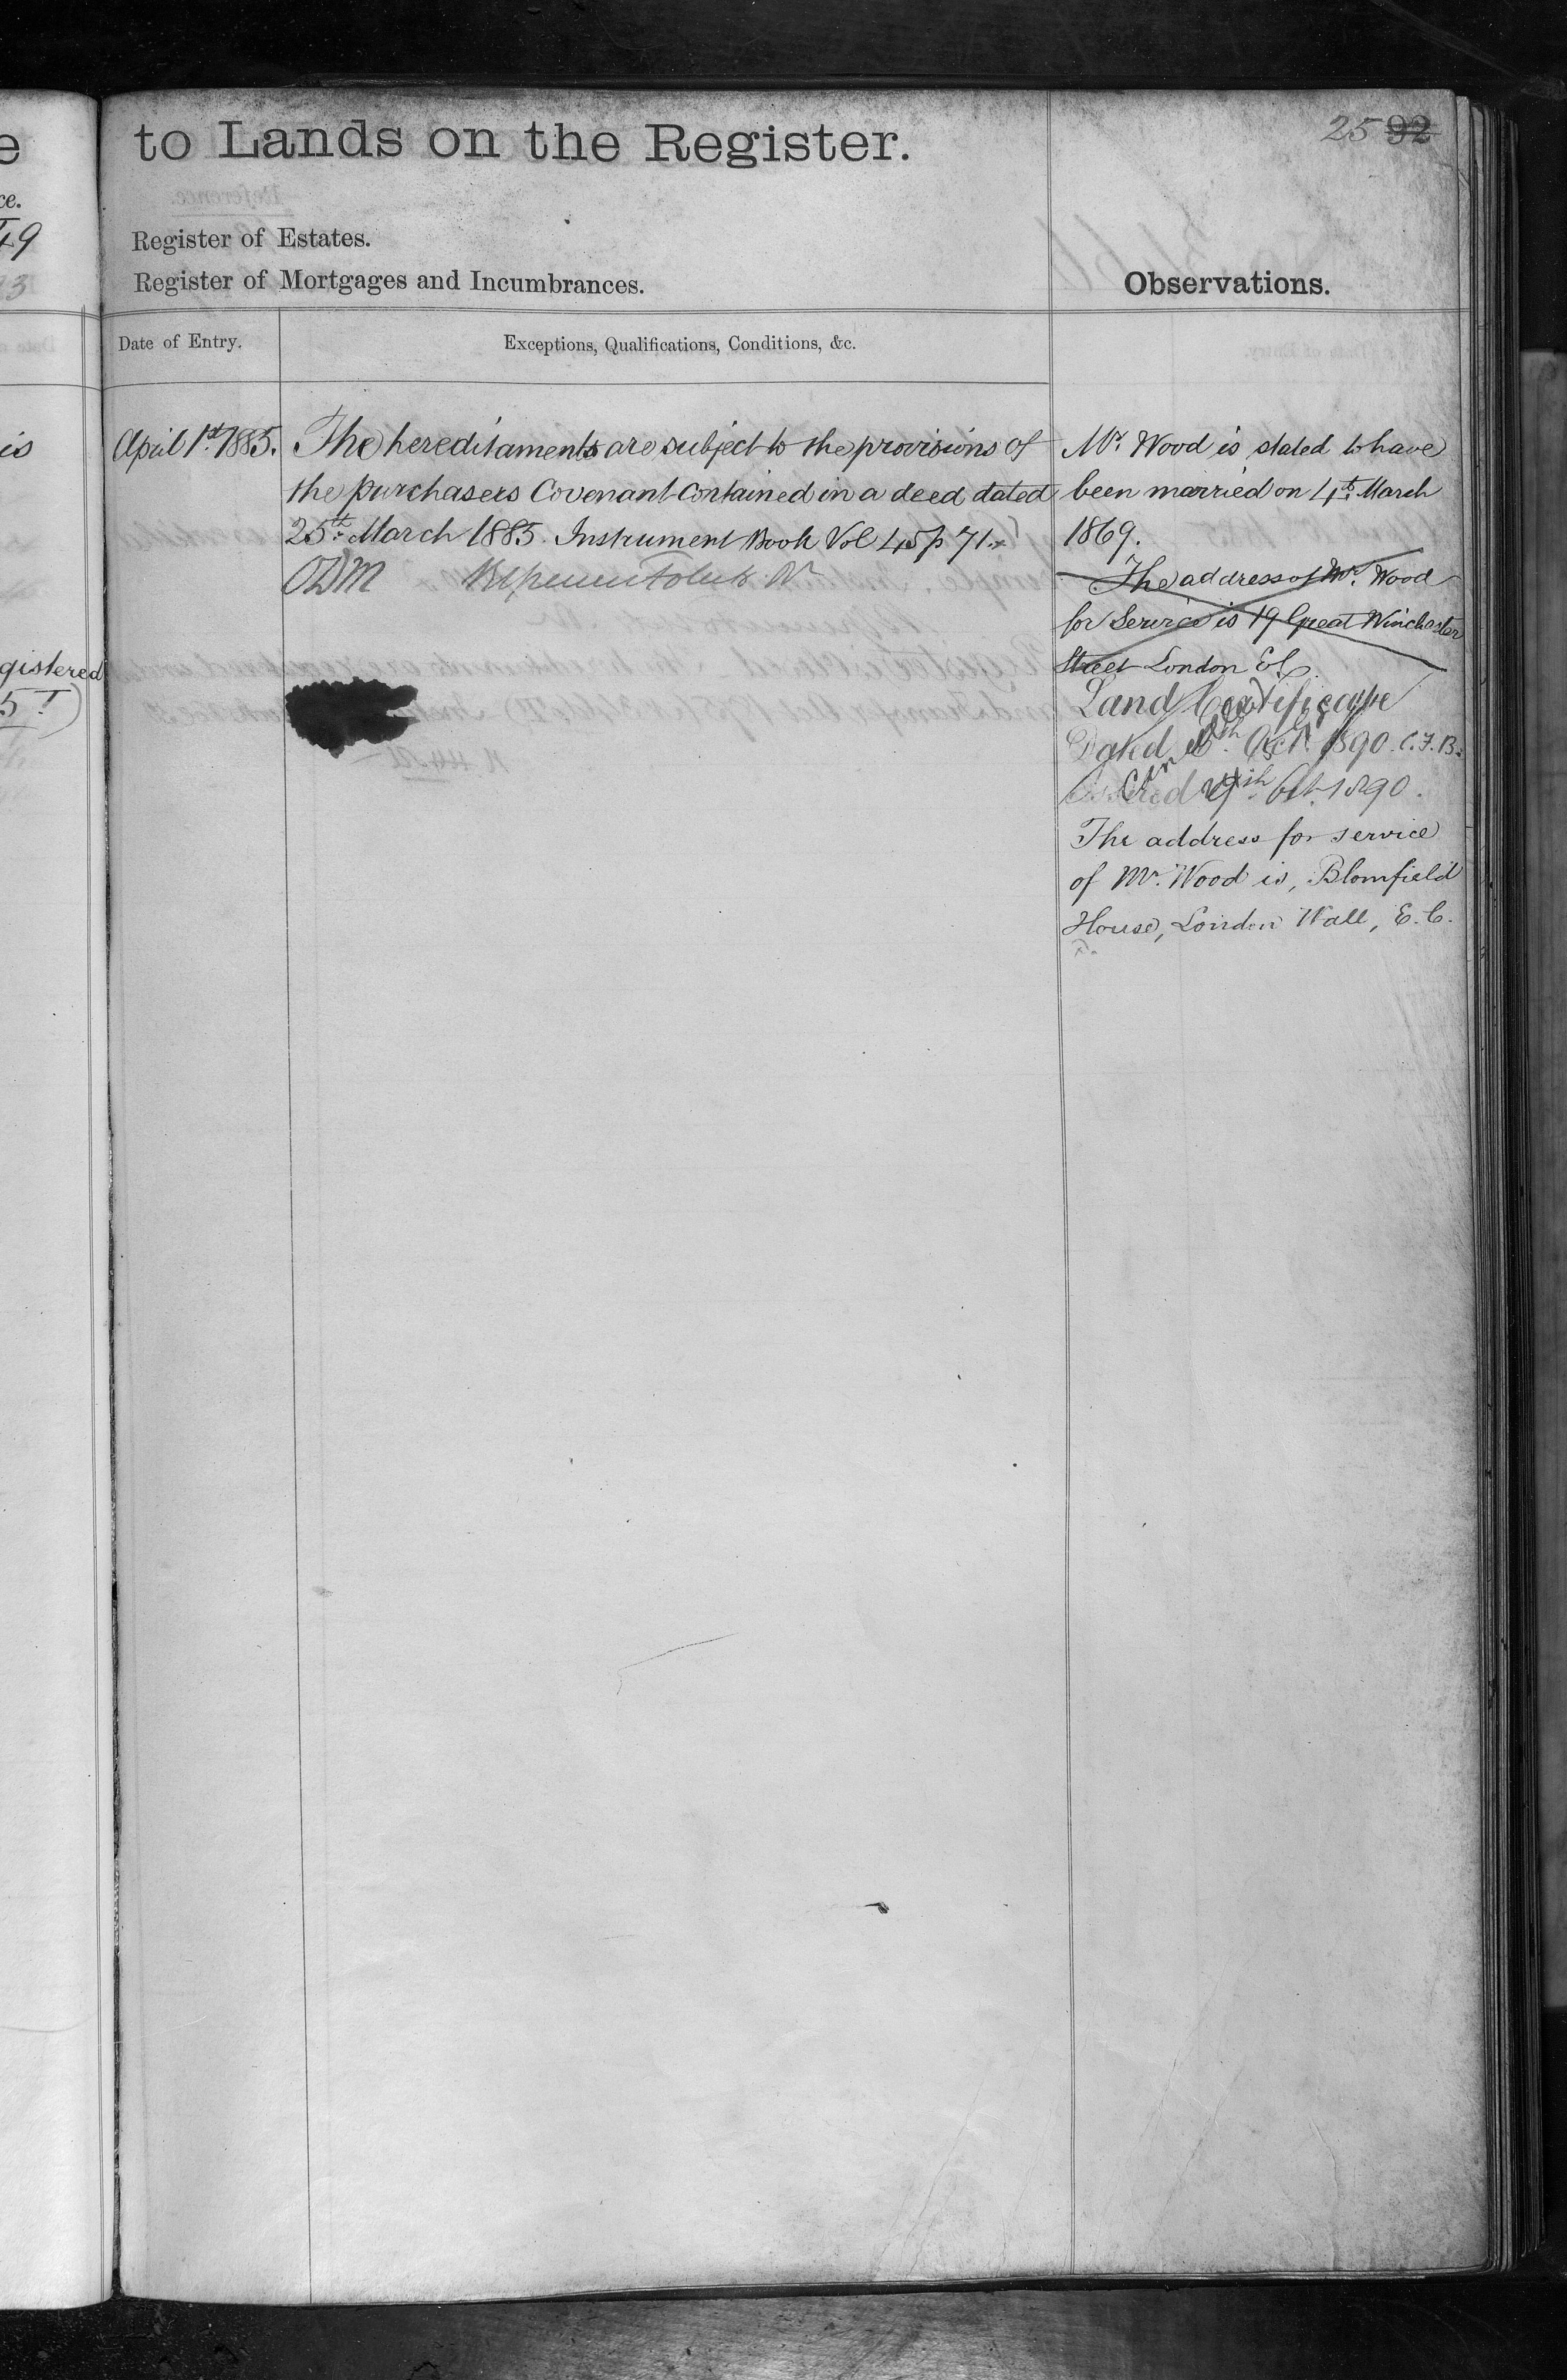 e
ce.
49
3
is
gistered
5
to Lands on the Register.
25 92
Register of Estates.
Register of Mortgages and Incumbrances.
Observations.
Date of Entry.
Exceptions, Qualifications, Conditions, &c.
April 1st 1885.
The hereditaments are subject to the provisions of
the purchasers Covenant contained in a deed dated
25th March 1885. Instrument Book Vol 45 p 71.
ODM
Mr. Wood is stated to have
been married on 4th March
1869.
The address of Mr. Wood
for Service is 19 Great Winchester
Street London EC
Land Certificate
Dated Oct. 1890. C.F.B.
Oct 1890.
The address for service
of Mr. Wood is, Blomfield
House, London Wall, E.C.